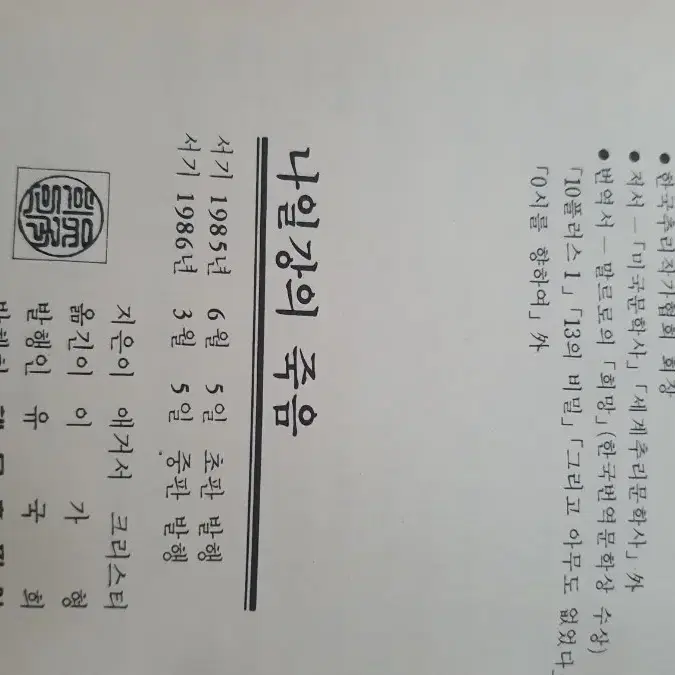 ● 한국추리작가협회 회장
● 저서 ─「미국문학사」「세계추리문학사」外
● 번역서 ─ 말로의「희망」(한국번역문학상 수상)
「10플러스 1」「13의 비밀」「그리고 아무도 없었다」
「0시를 향하여」外
나일강의 죽음
서기 1985년 6월 5일 초판 발행
서기 1986년 3월 5일 중판 발행
지은이 애거서 크리스티
옮긴이 이 가 형
발행인 유 국 희